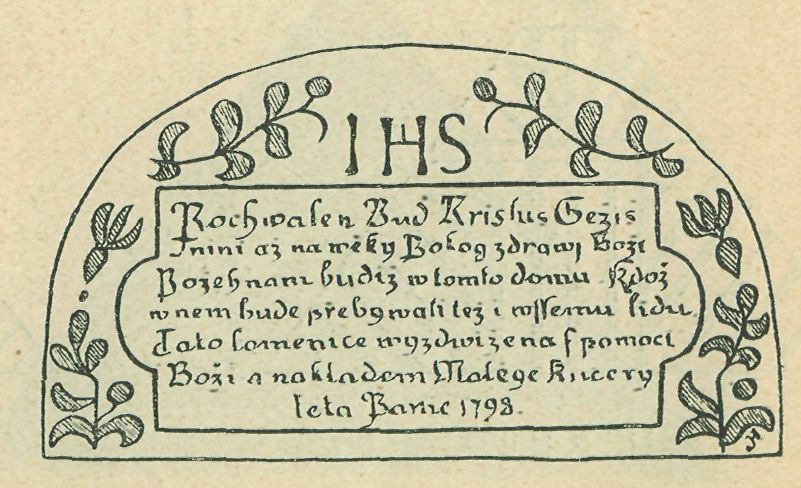 IHS
Pochwalen Bud Kristus Gezis
Jnini až na weky Pokog zdrawj Boži
Pozehnani budiž w tomto domu Kdož
w nem bude přebywati tež i wssemu lidu
Tato lomenice wyzdwizena s pomoci
Boži a nakladem Matege Kucery
leta Panie 1798.